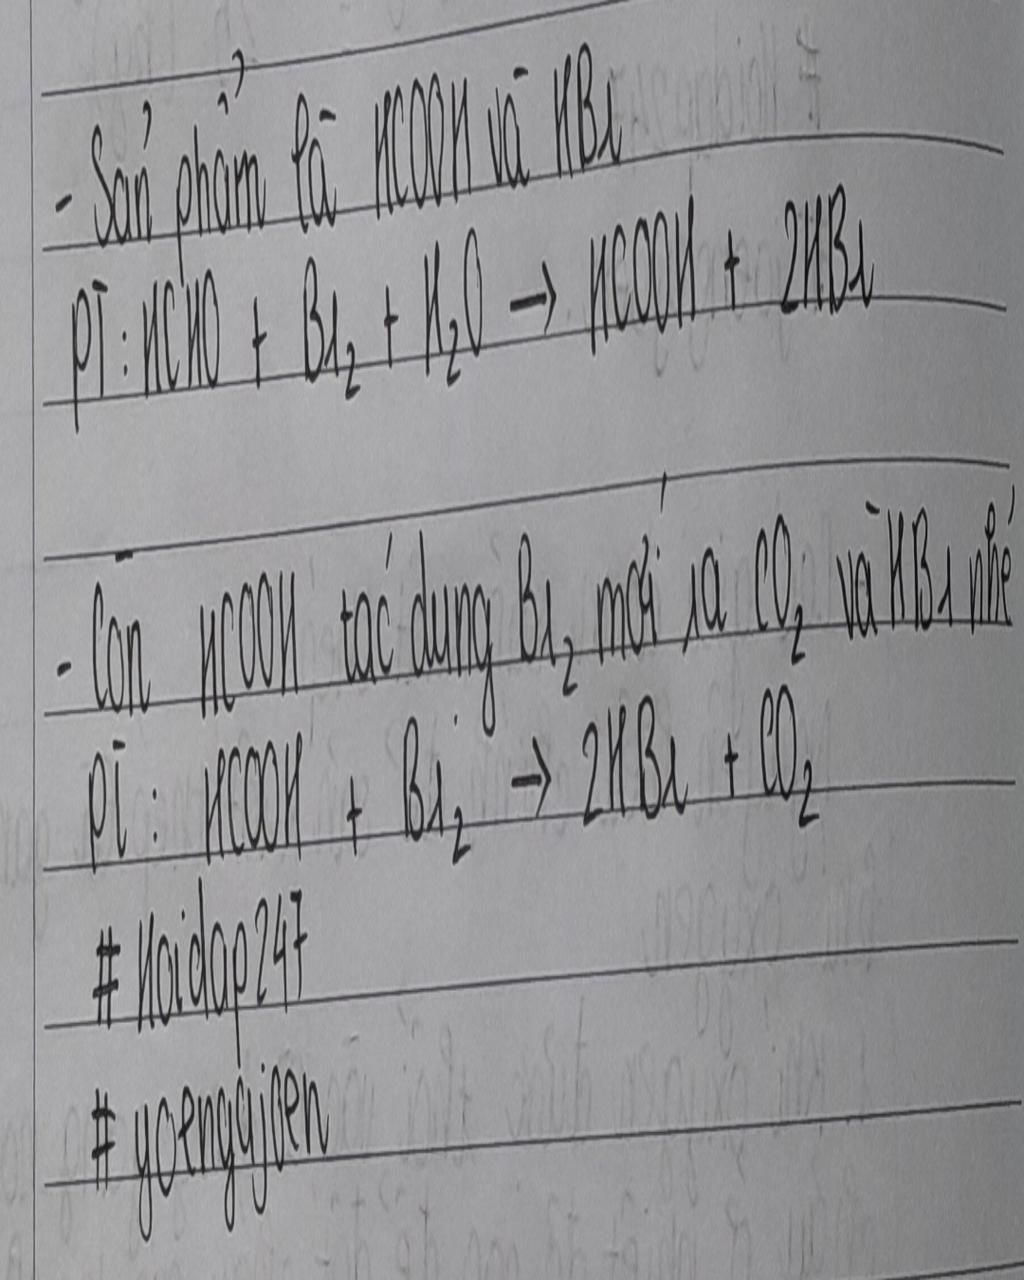 - Sản phẩm là HCOOH và HBr
PT: HCHO + Br₂ + H₂O → HCOOH + 2HBr
- Còn HCOOH tác dụng Br₂ mới ra CO₂ và HBr nhé
PT: HCOOH + Br₂ → 2HBr + CO₂
# Hoidap247
# yoengyjoen